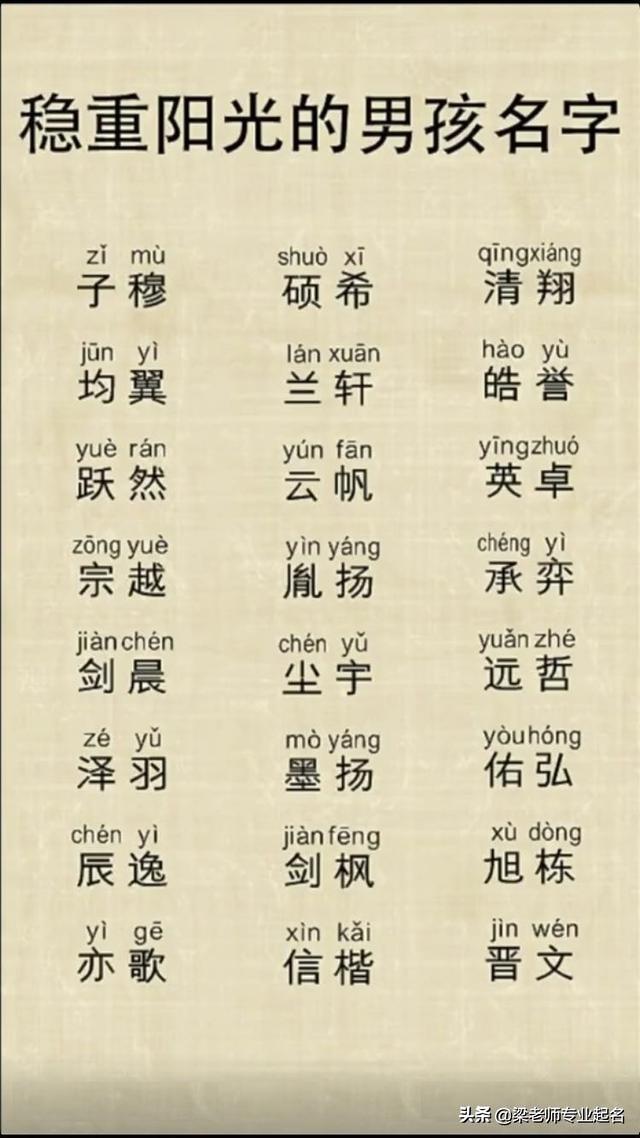 稳重阳光的男孩名字
zǐ mù shuò xī qīngxiáng
子穆 硕希 清翔
jūn yì lán xuān hào yù
均翼 兰轩 皓誉
yuè rán yún fān yīngzhuó
跃然 云帆 英卓
zōng yuè yìn yáng chéng yì
宗越 胤扬 承弈
jiàn chén chén yǔ yuǎn zhé
剑晨 尘宇 远哲
zé yǔ mò yáng yòu hóng
泽羽 墨扬 佑弘
chén yì jiàn fēng xù dòng
辰逸 剑枫 旭栋
yì gē xìn kǎi jìn wén
亦歌 信楷 晋文
头条 @梁老师专业起名